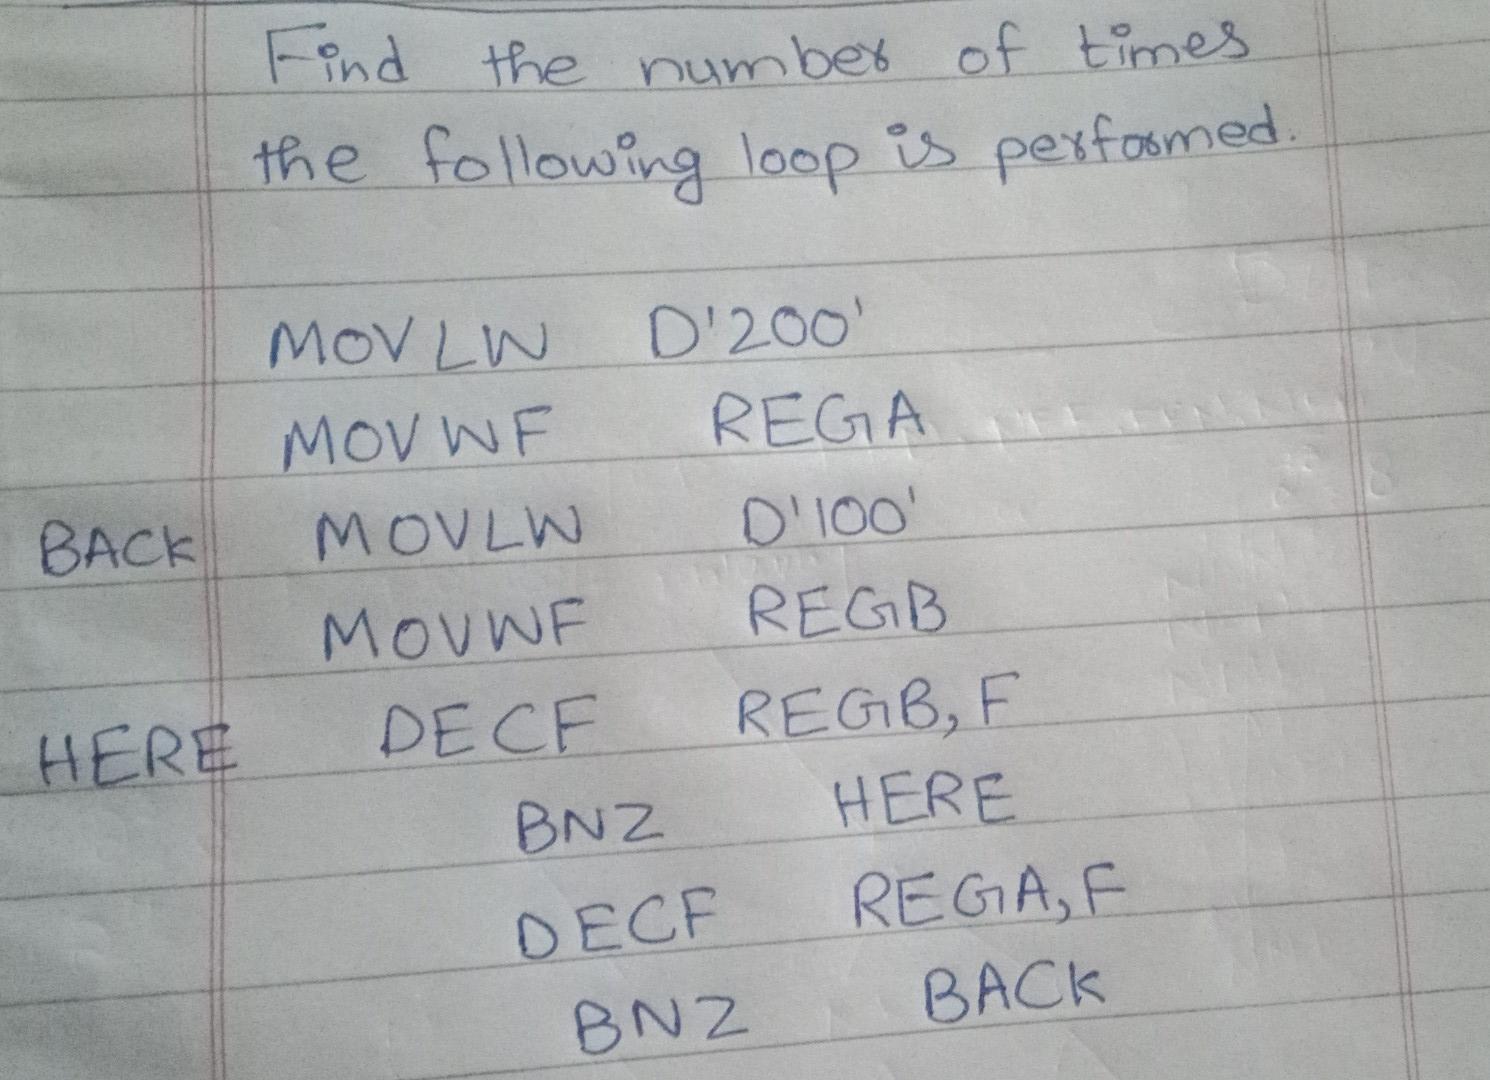 Find the number of times
the following loop is performed.
MOVLW D'200'
MOVWF REGA
BACK MOVLW D'100'
MOVWF REGB
HERE DECF REGB, F
BNZ HERE
DECF REGA, F
BNZ BACK